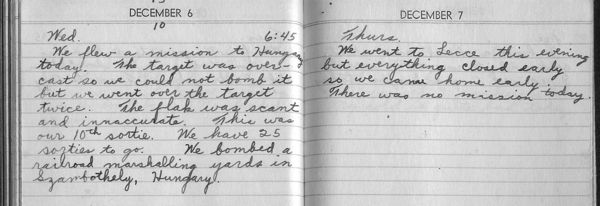 DECEMBER 6
10
Wed. 6:45
We flew a mission to Hungary
today. The target was over-
cast so we could not bomb it
but we went over the target
twice. The flak was scant
and innaccurate. This was
our 10th sortie. We have 25
sorties to go. We bombed a
railroad marshalling yards in
Szambothely, Hungary.
DECEMBER 7
Thurs.
We went to Lecce this evening
but everything closed early
so we came home early.
There was no mission today.